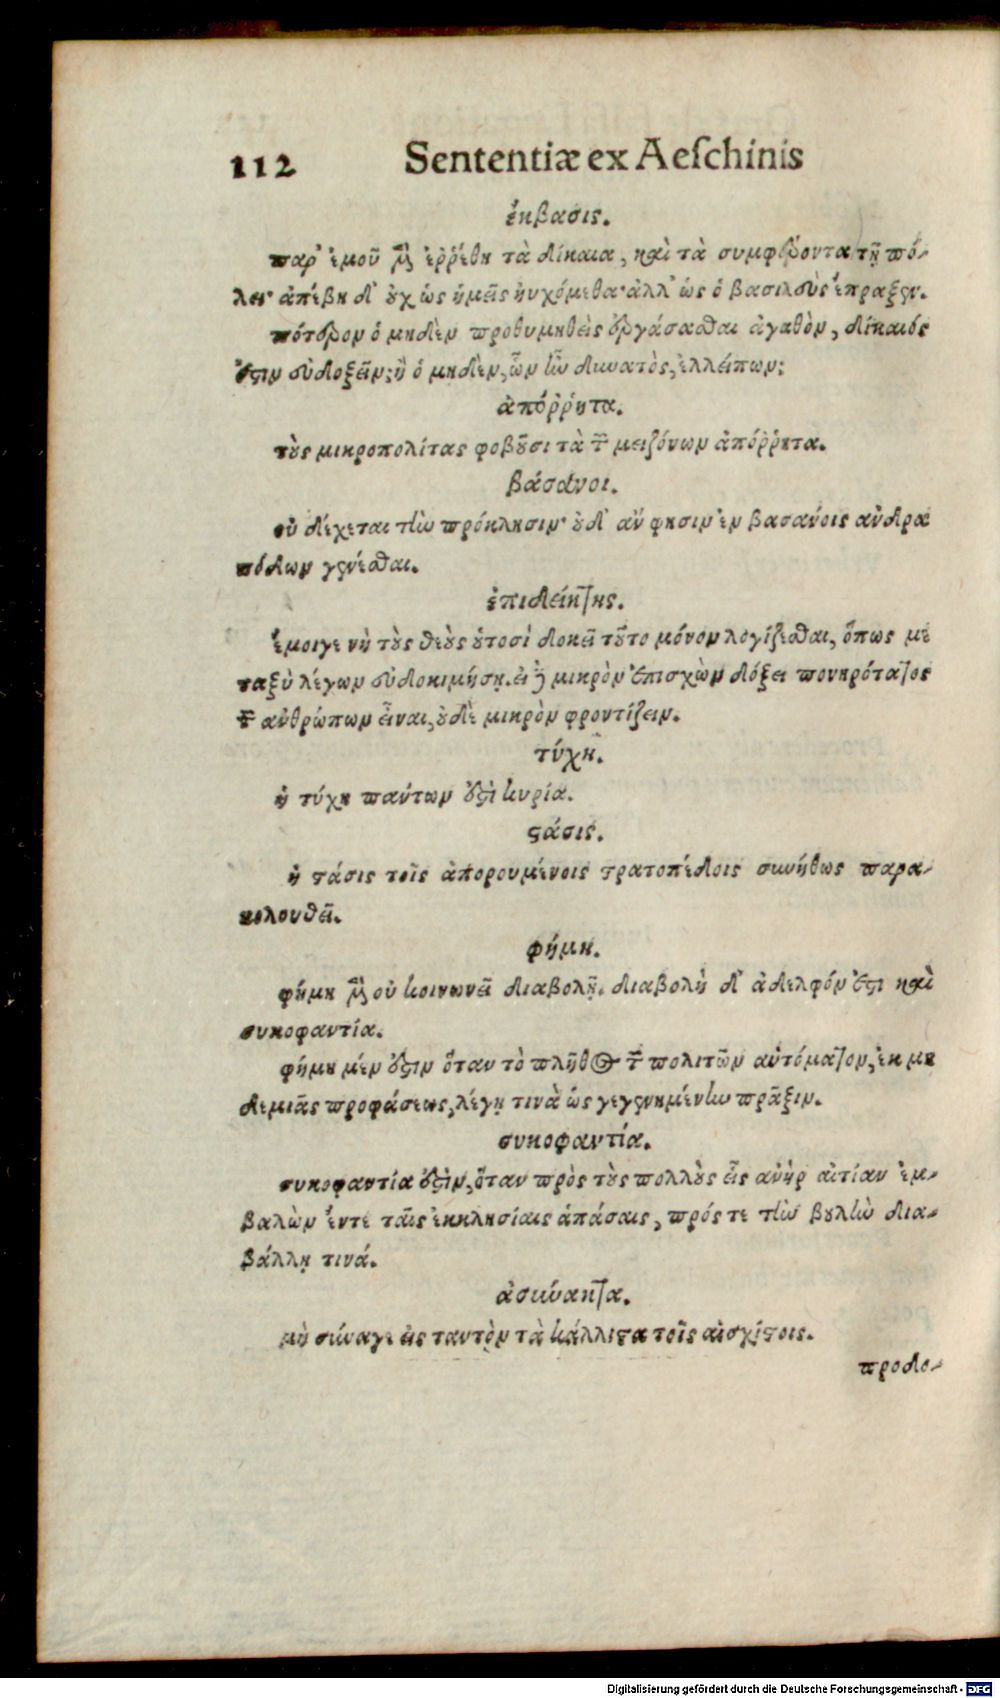 112 Sententiæ ex Aeſchinis
ἔκβασις.
παρ' ἐμοῦ μὲν ἐῤῥέθη τὰ δίκαια, καὶ τὰ συμφέροντα τῇ πό-
λει· ἀπέβη δ' οὐχ ὡς ἡμεῖς ηὐχόμεθα· ἀλλ' ὡς ὁ βασιλεὺς ἔπραξεν.
πότερον ὁ μηδὲν προθυμηθεὶς ἐργάσασθαι ἀγαθὸν, δίκαιός
ἐστιν εὐδοξεῖν; ἢ ὁ μηδὲν, ὧν ἦν δυνατὸς, ἐλλείπων;
ἀπόῤῥητα.
τοὺς μικροπολίτας φοβοῦσι τὰ τῶν μειζόνων ἀπόῤῥητα.
βάσανοι.
οὐ δέχεται τὴν πρόκλησιν· οὐδ' ἄν φησιν ἐν βασάνοις ἀνδρα
πόδων γενέσθαι.
ἐπιδείκτης.
ἔμοιγε νὴ τοὺς θεοὺς οὑτοσὶ δοκεῖ τοῦτο μόνον λογίζεσθαι, ὅπως με
ταξὺ λέγων εὐδοκιμήσῃ. εἰ δὲ μικρὸν ἐπισχὼν δόξει πονηρότατος
τῶν ἀνθρώπων εἶναι, οὐδὲ μικρὸν φροντίζειν.
τύχη.
ἡ τύχη πάντων ἐστὶ κυρία.
στάσις.
ἡ στάσις τοῖς ἀπορουμένοις στρατοπέδοις συνήθως παρα-
κολουθεῖ.
φήμη.
φήμη μὲν οὐ κοινωνεῖ διαβολῇ. διαβολὴ δ' ἀδελφόν ἐστι καὶ
συκοφαντία.
φήμη μέν ἐστιν ὅταν τὸ πλῆθος τῶν πολιτῶν αὐτόματον, ἐκ μη
δεμιᾶς προφάσεως, λέγῃ τινὰ ὡς γεγενημένην πρᾶξιν.
συκοφαντία.
συκοφαντία ἐστὶν, ὅταν πρὸς τοὺς πολλοὺς εἷς ἀνὴρ αἰτίαν ἐμ-
βαλὼν ἔν τε ταῖς ἐκκλησίαις ἁπάσαις, πρός τε τὴν βουλὴν δια-
βάλλῃ τινά.
ἀσύνακτα.
μὴ σύναγε εἰς ταυτὸν τὰ κάλλιστα τοῖς αἰσχίστοις.
προδο-
Digitalisierung gefördert durch die Deutsche Forschungsgemeinschaft - DFG